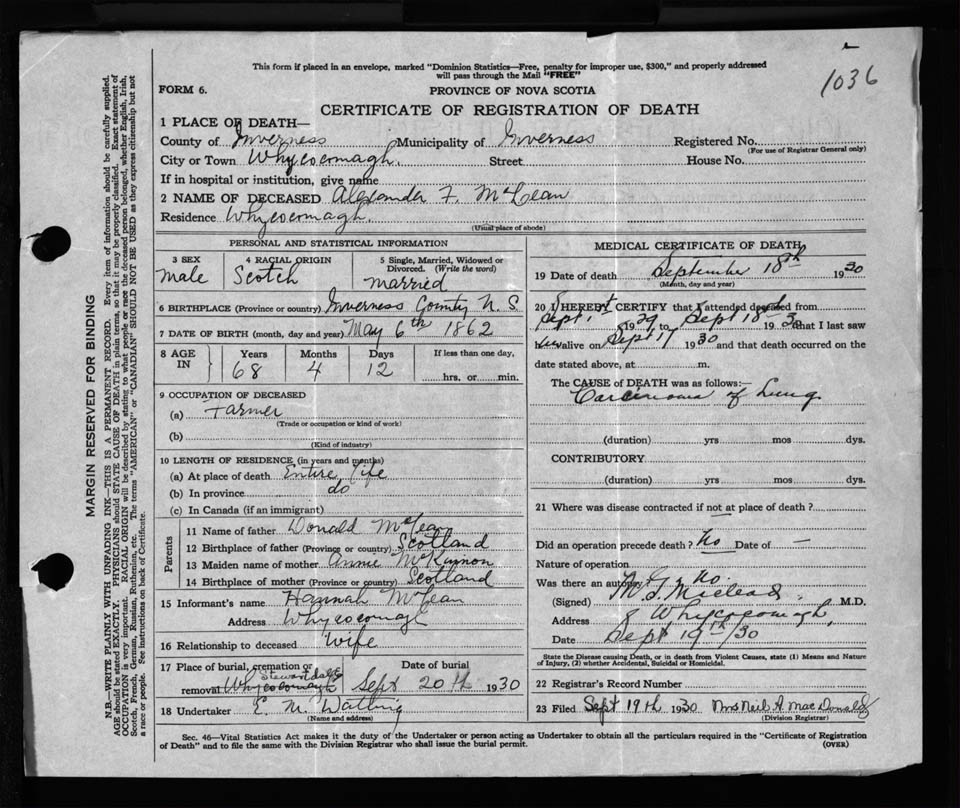 1036
This form if placed in an envelope, marked "Dominion Statistics—Free, penalty for improper use, $300," and properly addressed
will pass through the Mail "FREE"
FORM 6.
PROVINCE OF NOVA SCOTIA
CERTIFICATE OF REGISTRATION OF DEATH
1 PLACE OF DEATH—
County of Inverness Municipality of Inverness Registered No.
(For use of Registrar General only)
City or Town Whycocomagh. Street House No.
If in hospital or institution, give name
2 NAME OF DECEASED Alexander F. McLean
Residence Whycocomagh.
(Usual place of abode)
PERSONAL AND STATISTICAL INFORMATION
3 SEX Male
4 RACIAL ORIGIN Scotch
5 Single, Married, Widowed or Divorced. (Write the word) married
6 BIRTHPLACE (Province or country) Inverness County N. S.
7 DATE OF BIRTH (month, day and year) May 6th 1862
8 AGE IN Years 68 Months 4 Days 12 If less than one day, hrs. or min.
9 OCCUPATION OF DECEASED
(a) Farmer
(Trade or occupation or kind of work)
(b)
(Kind of industry)
10 LENGTH OF RESIDENCE (in years and months)
(a) At place of death Entire Life
(b) In province do
(c) In Canada (if an immigrant)
Parents
11 Name of father Donald McLean
12 Birthplace of father (Province or country) Scotland
13 Maiden name of mother Annie McKinnon
14 Birthplace of mother (Province or country) Scotland
15 Informant's name Hannah McLean
Address Whycocomagh
16 Relationship to deceased Wife
17 Place of burial, cremation or removal Stewartdale Whycocomagh
Date of burial Sept 20th 1930
18 Undertaker E. M.
(Name and address)
MEDICAL CERTIFICATE OF DEATH
19 Date of death September 18th 1930
(Month, day and year)
20 I HEREBY CERTIFY that I attended deceased from
Sept. 1st 19 to Sept 18th 1930 that I last saw
alive on Sept 17 1930 and that death occurred on the
date stated above, at m.
The CAUSE of DEATH was as follows:—
Carcinoma of Lung.
(duration) yrs mos dys.
CONTRIBUTORY
(duration) yrs mos dys.
21 Where was disease contracted if not at place of death?
Did an operation precede death? No Date of —
Nature of operation
Was there an autopsy No.
(Signed) Macleod M.D.
Address Whycocomagh,
Date Sept 19th /30
State the Disease causing Death, or in death from Violent Causes, state (1) Means and Nature
of Injury, (2) whether Accidental, Suicidal or Homicidal.
22 Registrar's Record Number
23 Filed Sept 19th 1930 Mrs Neil A. MacDonald
(Division Registrar)
Sec. 46—Vital Statistics Act makes it the duty of the Undertaker or person acting as Undertaker to obtain all the particulars required in the "Certificate of Registration
of Death" and to file the same with the Division Registrar who shall issue the burial permit.
(OVER)
MARGIN RESERVED FOR BINDING
N.B.—WRITE PLAINLY WITH UNFADING INK—THIS IS A PERMANENT RECORD. Every item of information should be carefully supplied.
AGE should be stated EXACTLY. PHYSICIANS should STATE CAUSE OF DEATH in plain terms, so that it may be properly classified. Exact statement of
OCCUPATION is very important. RACIAL ORIGIN will be described by stating to what people or race the deceased person belonged, whether English, Irish,
Scotch, French, German, Russian, Ruthenian, etc. The terms "AMERICAN" or "CANADIAN" SHOULD NOT BE USED as they express citizenship but not
a race or people. See instructions on back of Certificate.